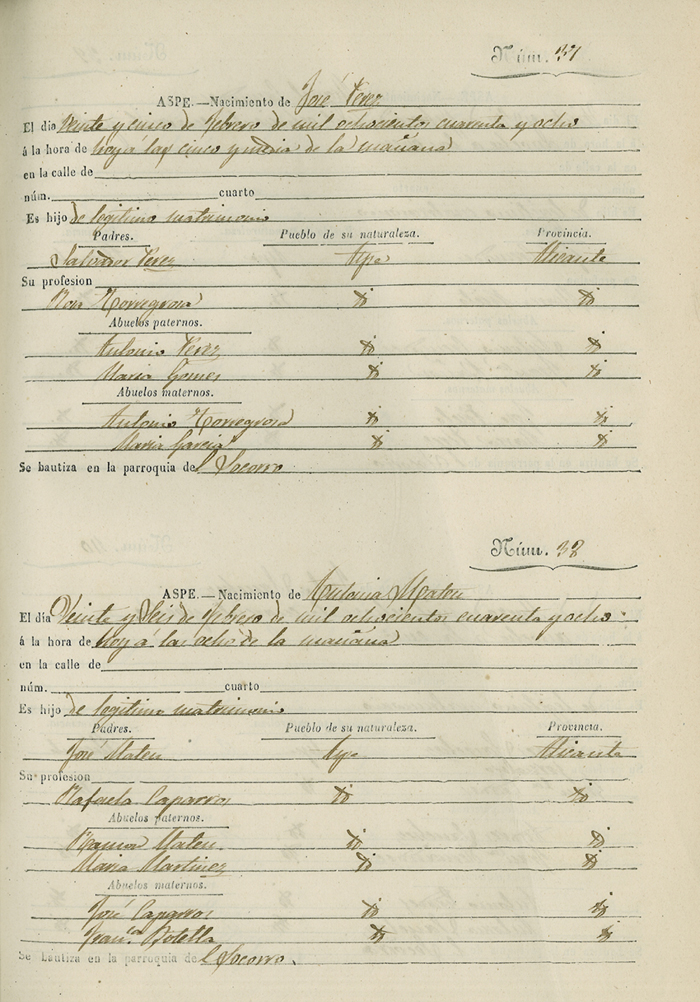 Núm. 37
ASPE.—Nacimiento de José Perez
El dia Veinte y cinco de febrero de mil ochocientos cuarenta y ocho
á la hora de hoy á las cinco y media de la mañana
en la calle de
núm. cuarto
Es hijo de legitimo matrimonio
Padres. Pueblo de su naturaleza. Provincia.
Salvador Perez Aspe Alicante
Su profesion
Rosa Torregrosa id id
Abuelos paternos.
Antonio Perez id id
Maria Gomes id id
Abuelos maternos.
Antonio Torregrosa id id
Maria Garcia id id
Se bautiza en la parroquia del Socorro
Núm. 38
ASPE.—Nacimiento de Antonia Mateu
El dia Veinte y seis de febrero de mil ochocientos cuarenta y ocho
á la hora de hoy á las ocho de la mañana
en la calle de
núm. cuarto
Es hijo de legitimo matrimonio
Padres. Pueblo de su naturaleza. Provincia.
José Mateu Aspe Alicante
Su profesion
Rafaela Caparros id id
Abuelos paternos.
Ramon Mateu id id
Maria Martinez id id
Abuelos maternos.
José Caparros id id
Fran.ca Botella id id
Se bautiza en la parroquia del Socorro.